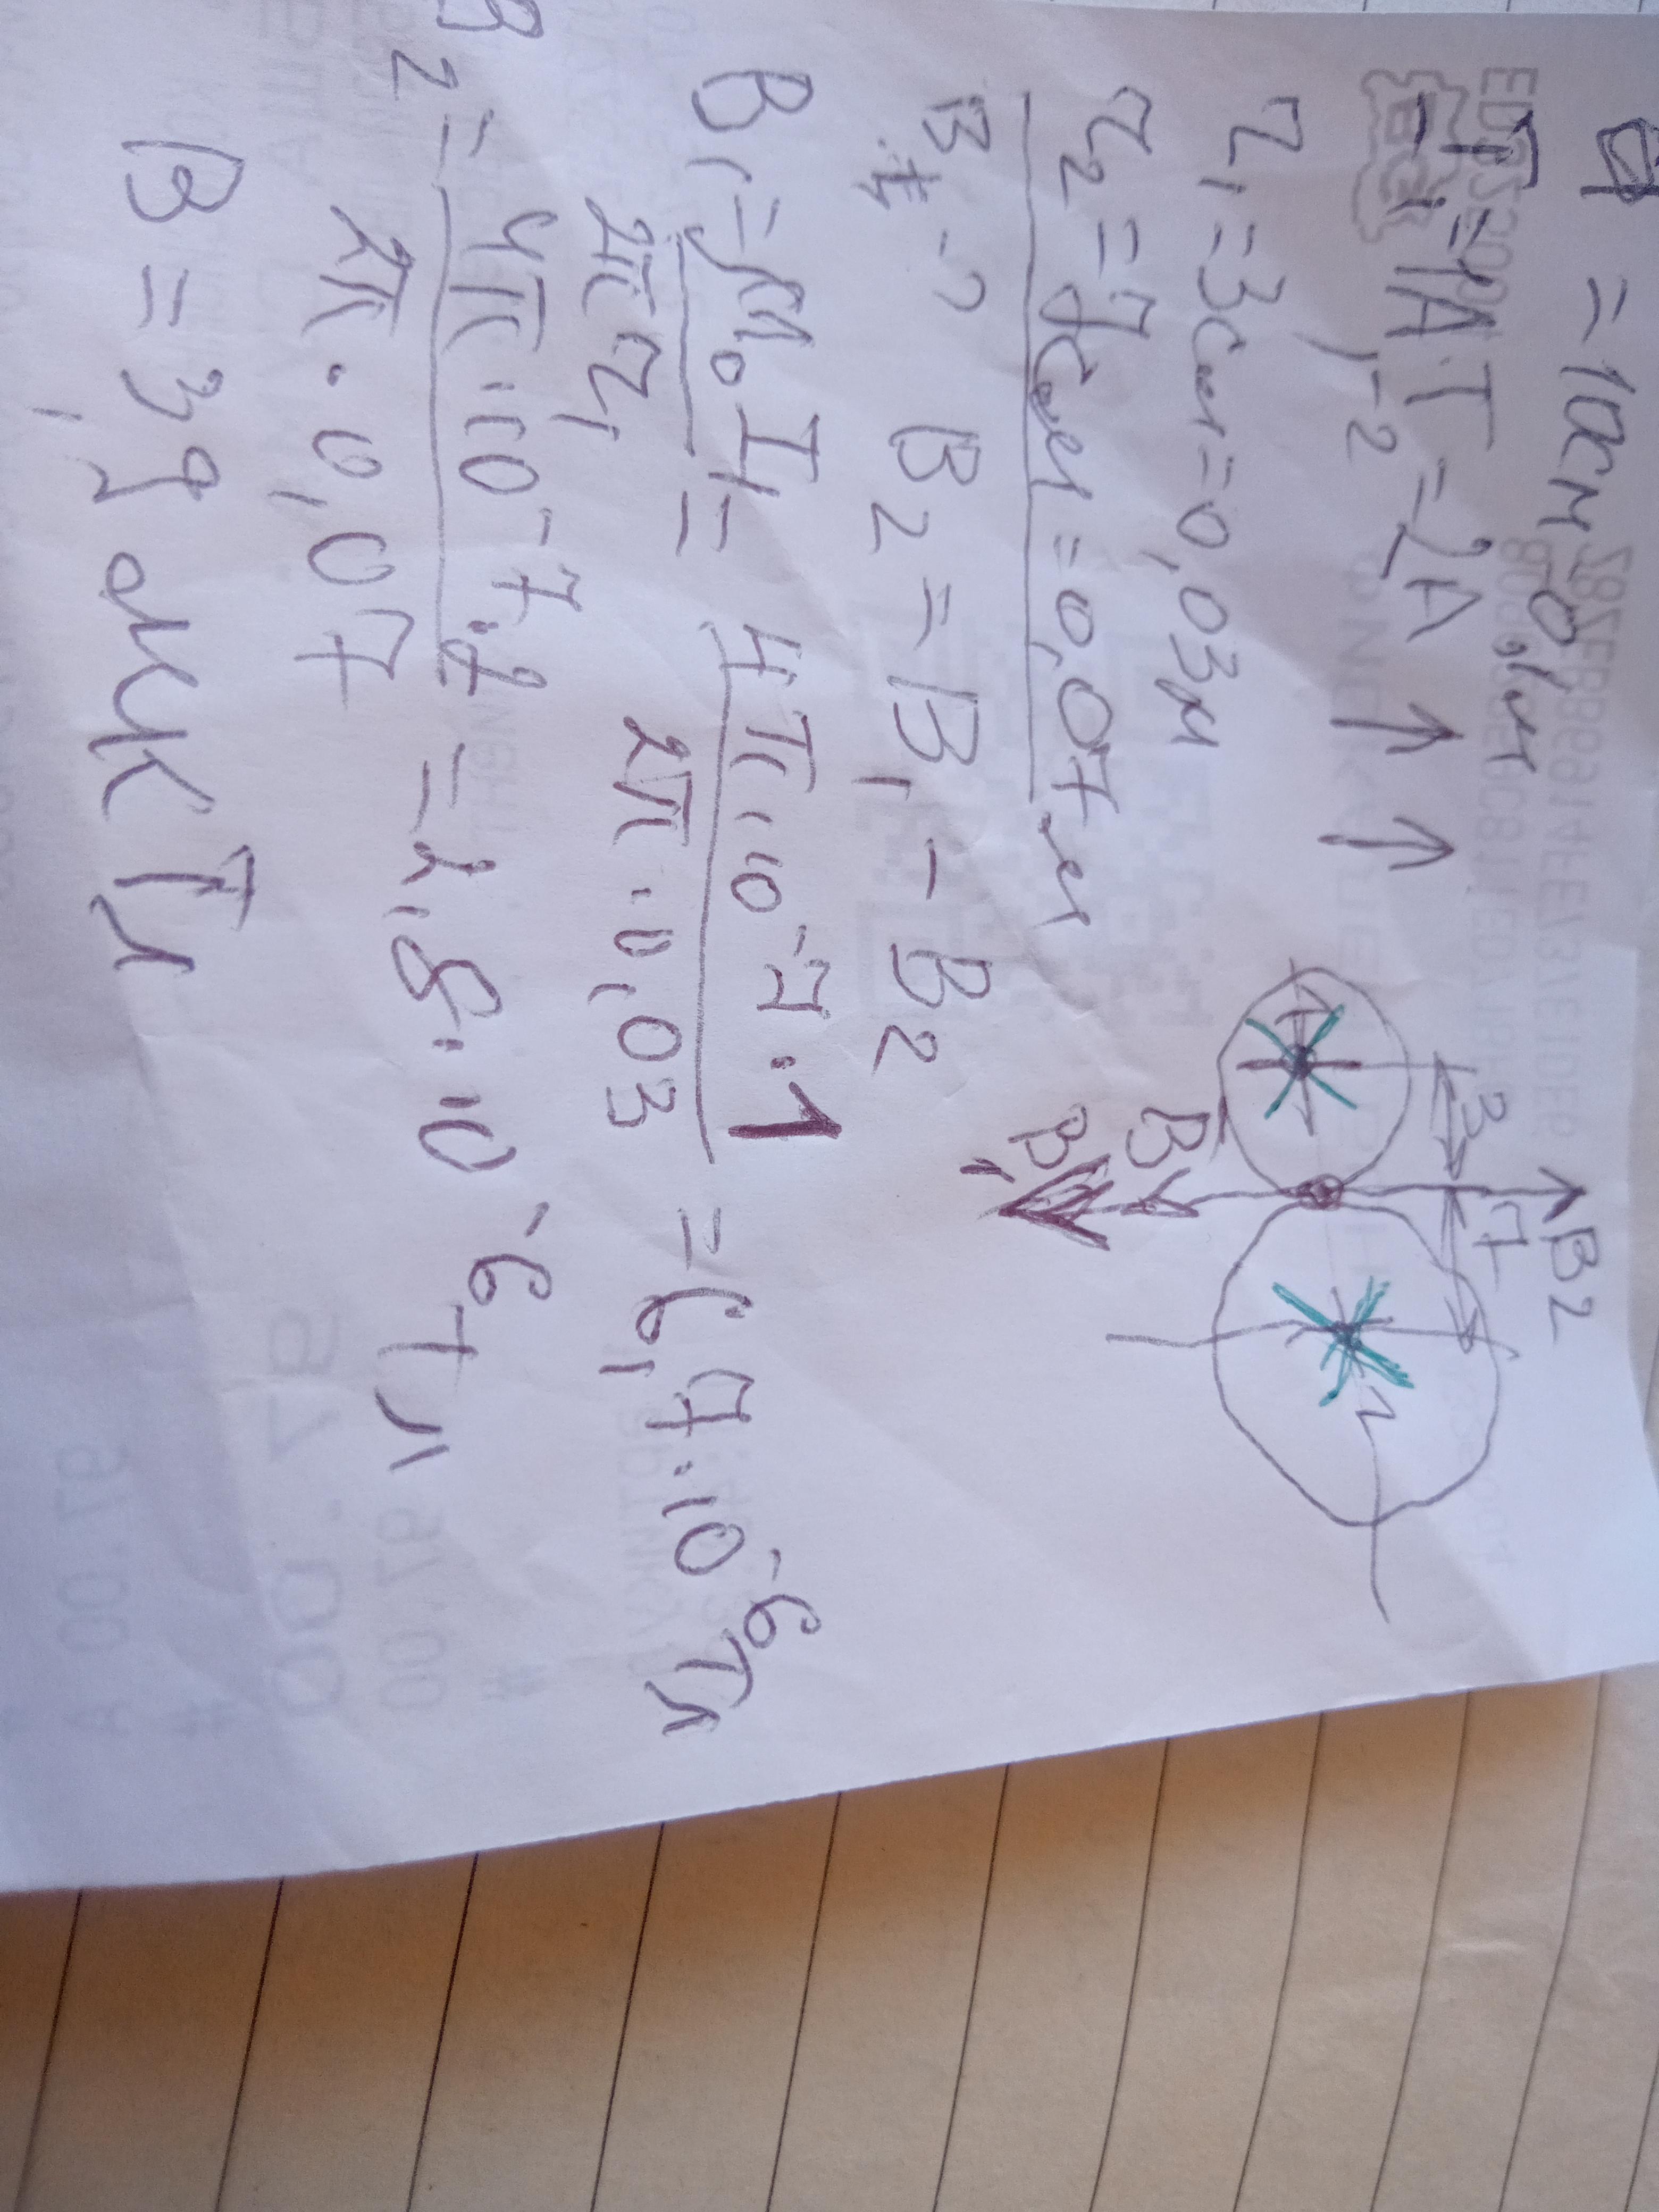 d = 10см = 0,1м
I₁ = 1A. I₂ = 2A ↑ ↑
r₁ = 3см = 0,03м
r₂ = 7см = 0,07м
B - ?
B₂ = B₁ - B₂
B₁ = μ₀I₁/2πr₁ = 4π·10⁻⁷·1/2π·0,03 = 6,7·10⁻⁶Тл
B₂ = 4π·10⁻⁷·2/2π·0,07 = 2,8·10⁻⁶Тл
B = 3,9 мкТл
3
7
B2
B
B₁